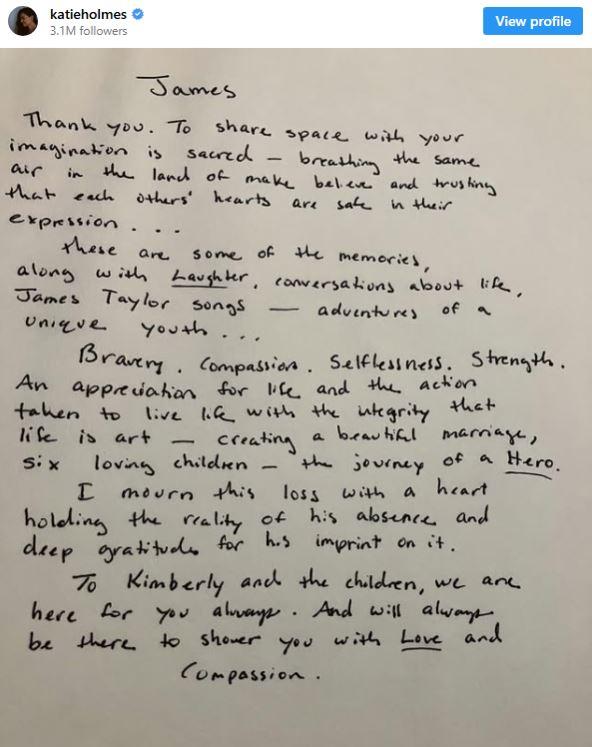 katieholmes
3.1M followers
View profile
James
Thank you. To share space with your
imagination is sacred — breathing the same
air in the land of make believe and trusting
that each others' hearts are safe in their
expression . . .
these are some of the memories,
along with Laughter, conversations about life,
James Taylor songs — adventures of a
unique youth . . .
Bravery. Compassion. Selflessness. Strength.
An appreciation for life and the action
taken to live life with the integrity that
life is art — creating a beautiful marriage,
six loving children — the journey of a Hero.
I mourn this loss with a heart
holding the reality of his absence and
deep gratitude for his imprint on it.
To Kimberly and the children, we are
here for you always. And will always
be there to shower you with Love and
Compassion.